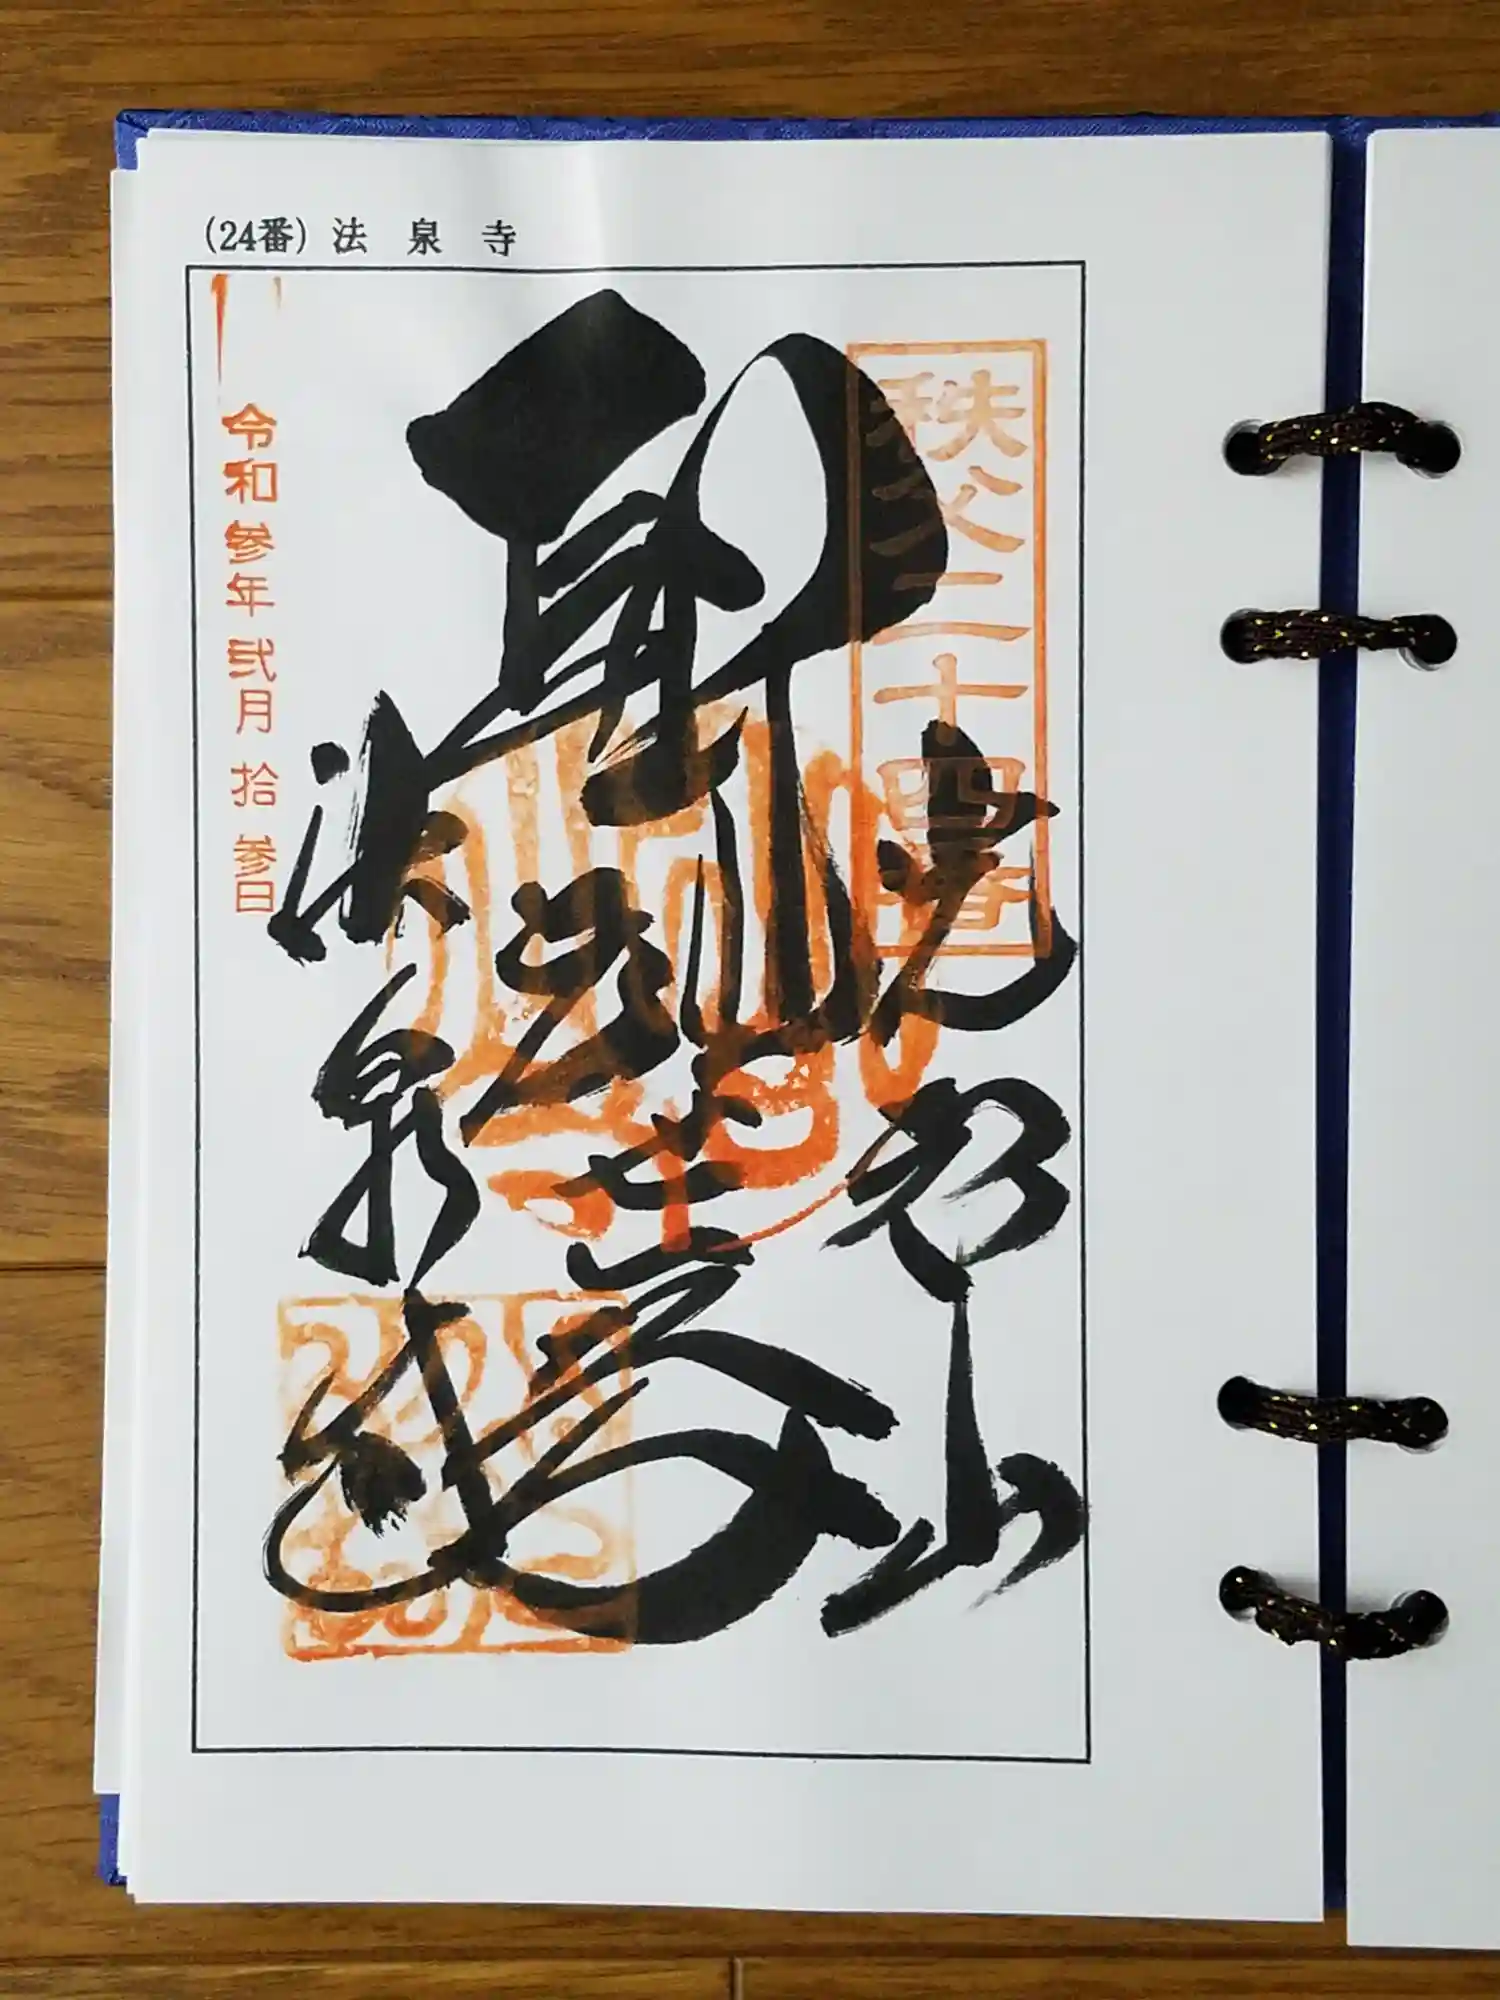 (24番) 法泉寺
秩父二十四番
光智山
法泉寺
令和参年弐月拾参日